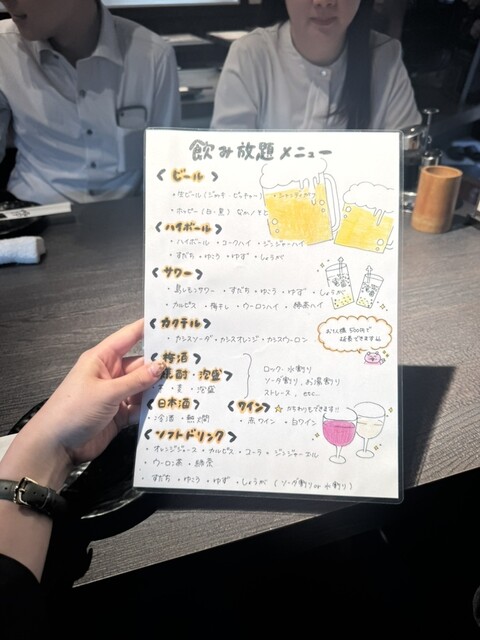 飲み放題メニュー
<ビール>
・生ビール(ジョッキ・ピッチャー) ・シャンディガフ
・ホッピー(白・黒)
<ハイボール>
・ハイボール ・コークハイ ・ジンジャーハイ
・すだち ・ゆこう ・ゆず ・しょうが
<サワー>
・島レモンサワー ・すだち ・ゆこう ・ゆず ・しょうが
・カルピス ・梅干し ・ウーロンハイ ・緑茶ハイ
お1人様 500円で
延長できます
<カクテル>
・カシスソーダ ・カシスオレンジ ・カシスウーロン
<梅酒>
焼酎・泡盛>
・麦 ・泡盛
ロック、水割り
ソーダ割り、お湯割り
ストレート、etc...
<日本酒>
・冷酒 ・熱燗
<ワイン> ☆カチわりもできます!!
・赤ワイン ・白ワイン
<ソフトドリンク>
・オレンジジュース ・カルピス ・コーラ ・ジンジャーエール
・ウーロン茶 ・緑茶
・すだち ・ゆこう ・ゆず ・しょうが (ソーダ割り or 水割り)